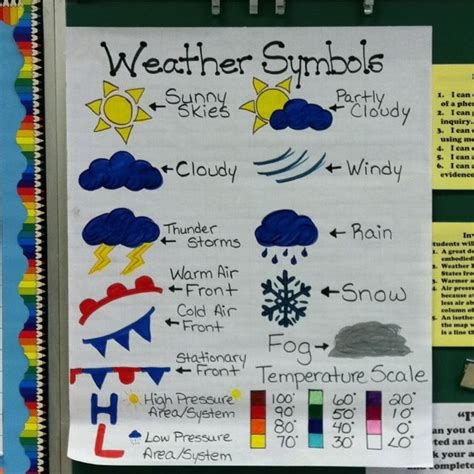 Weather Symbols
Sunny Skies
Partly Cloudy
Cloudy
Windy
Thunder storms
Rain
Warm Air Front
Snow
Cold Air Front
Fog
Stationary Front
Temperature Scale
H High Pressure Area/System
L Low Pressure Area/System
100° 60° 20°
90° 50° 10°
80° 40° 0°
70° 30° <0°
1. I can
of a phe
2. I can
inquiry
3. I can
using m
4. I can
5. I can
evidence
In
tudents will
1. A great de
embodied
2. Weather
States fro
3. Warmer a
4. Air press
because
less air ab
column of
5. An isothe
the map
is a line th
an you d
ted an
k your s
omplete